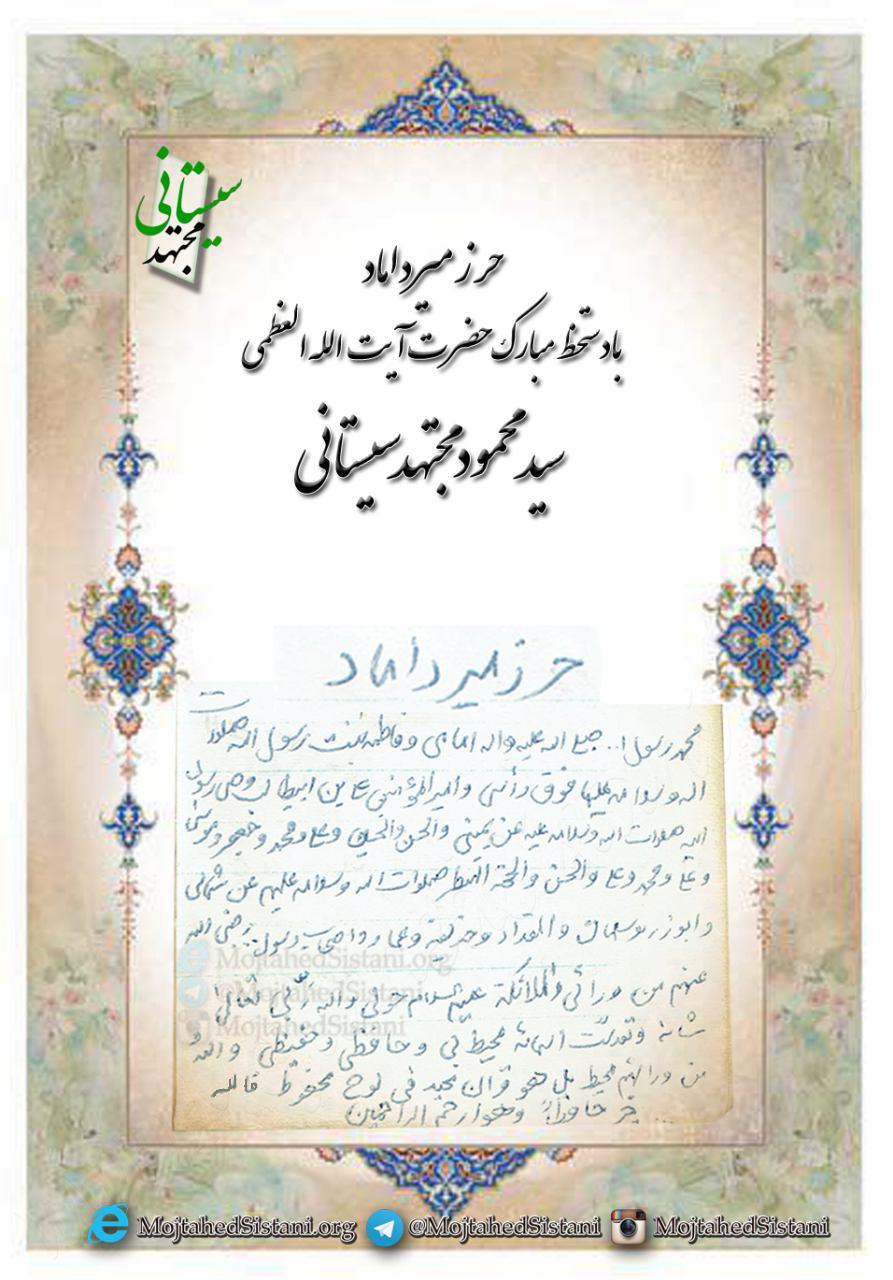 سیستانی
مجتهد
حرز میرداماد
با دستخط مبارک حضرت آیت الله العظمی
سید محمود مجتهد سیستانی
حرز میرداماد
محمد رسول ا.. صلی الله علیه واله امامی و فاطمه بنت رسول الله صلوات
الله وسلامه علیها فوق رأسی وأمیرالمؤمنین علی بن ابیطالب وصی رسول
الله صلوات الله وسلامه علیه عن یمینی والحسن والحسین وعلی ومحمد وجعفر وموسی
وعلی ومحمد وعلی والحسن والحجة المنتظر صلوات الله وسلامه علیهم عن شمالی
وابوذر وسلمان والمقداد وحذیفة وعمار واصحاب رسول رضی الله
عنهم من ورائی والملائکة علیهم السلام حولی والله ربی تعالی
شانه وتقدست اسمائه محیط بی وحافظی وحفیظی والله
من ورائهم محیط بل هو قرآن مجید فی لوح محفوظ فالله
خیر حافظا وهو ارحم الراحمین
MojtahedSistani.org
MojtahedSistani
MojtahedSistani
MojtahedSistani.org @MojtahedSistani MojtahedSistani